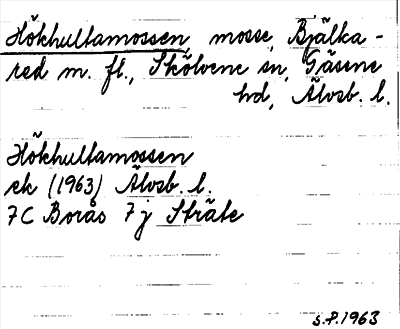 Hökhultamossen, mosse, Bjälka-
red m. fl., Skölvene sn, Gäsene
hd, Älvsb. l.
Hökhultamossen
ek (1963) Älvsb. l.
7C Borås 7 j Sträte
S.P. 1963